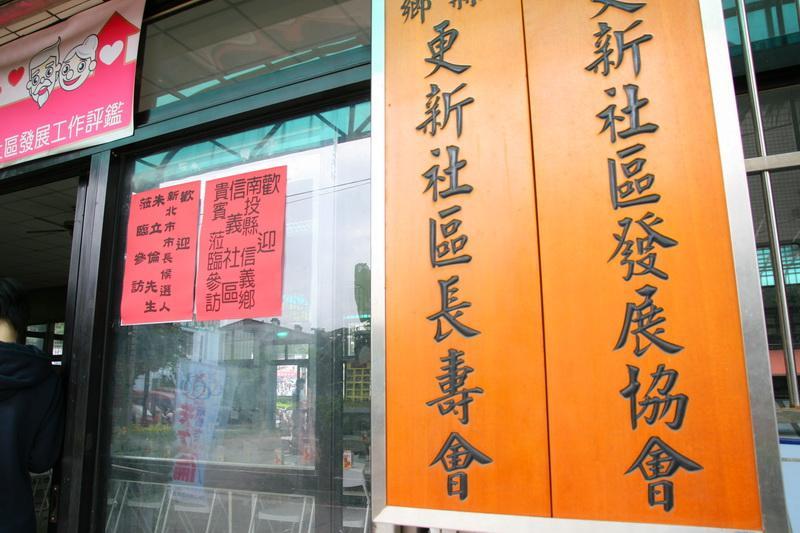 更新社區發展協會
鄉更新社區長壽會
社區發展工作評鑑
歡迎
南投縣信義鄉
信義社區
貴賓蒞臨參訪
歡迎
新北市市長候選人
朱立倫先生
蒞臨參訪